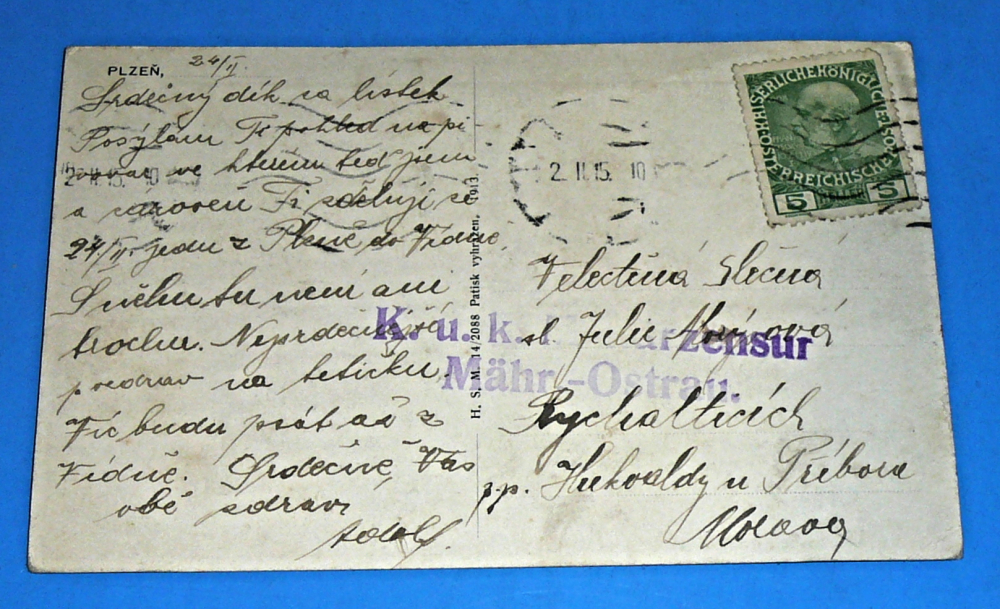 PLZEŇ, 24/II.
Srdečný dík za lístek
Posýlám Ti pohled na pi
vovar ve kterém teď jsem
a zároveň Ti sděluji, že
24/II. jedu z Plzně do Vídně,
Sněhu tu není ani
trochu. Nejsrdečnější
pozdrav na tetičku.
Víc budu psát až z
Vídně. Srdečně Vás
obě zdraví
Adolf.
H. S. M. 14/2088 Patisk vyhražen, 1913.
2. II. 15. 10
2. II. 15. 10
KAISERLICHE KÖNIGLICHE
ÖSTERREICHISCHE
5 5
Velectěná Slečna
sl. Julie
K. u. k. zensur
Mähr.-Ostrau.
Rychalticích
p.p. Hukvaldy u Příbora
Morava